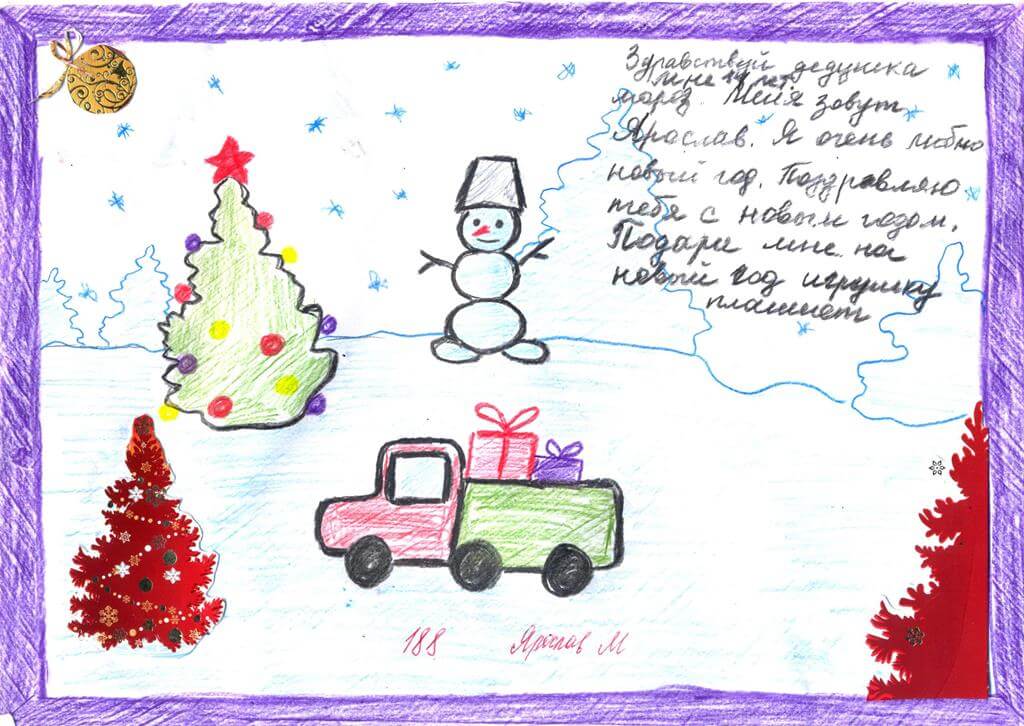 Здравствуй дедушка
мне 14 лет
мороз. Меня зовут
Ярослав. Я очень люблю
новый год. Поздравляю
тебя с новым годом.
Подари мне на
новый год игрушку
планшет
188 Ярослав М